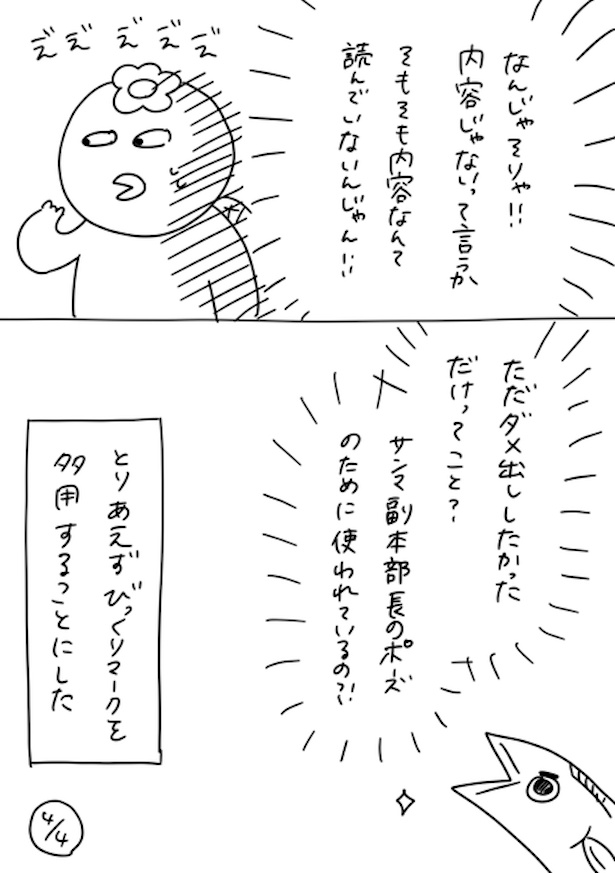 なんじゃそりゃ!!
内容じゃないって言うか
そもそも内容なんて
読んでいないんじゃん!!
ええええええ
ただダメ出ししたかった
だけってこと?
サンマ副本部長のポーズ
のために使われているの?!
とりあえずびっくりマークを
多用することにした
4/4